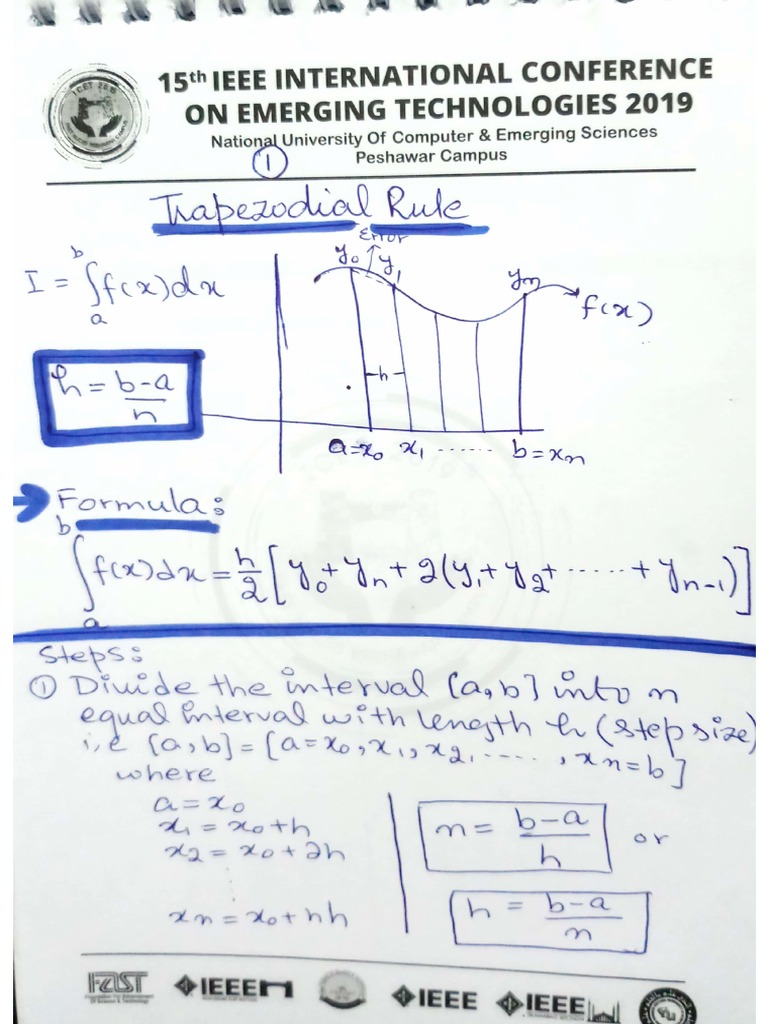 15th IEEE INTERNATIONAL CONFERENCE
ON EMERGING TECHNOLOGIES 2019
National University Of Computer & Emerging Sciences
Peshawar Campus
①
Trapezodial Rule
I = ∫ₐᵇ f(x)dx
h = (b-a)/n
Error
y₀ y₁ yₙ
f(x)
h
a=x₀ x₁ ...... b=xₙ
Formula:
∫ₐᵇ f(x)dx = h/2 [y₀ + yₙ + 2(y₁ + y₂ + ...... + yₙ₋₁)]
Steps:
① Divide the interval [a,b] into n
equal interval with length h (step size)
i,e [a,b] = [a=x₀, x₁, x₂, ......, xₙ=b]
where
a = x₀
x₁ = x₀+h
x₂ = x₀+2h
⋮
xₙ = x₀+nh
n = (b-a)/h or
h = (b-a)/n
FAST
IEEE
IEEE
IEEE